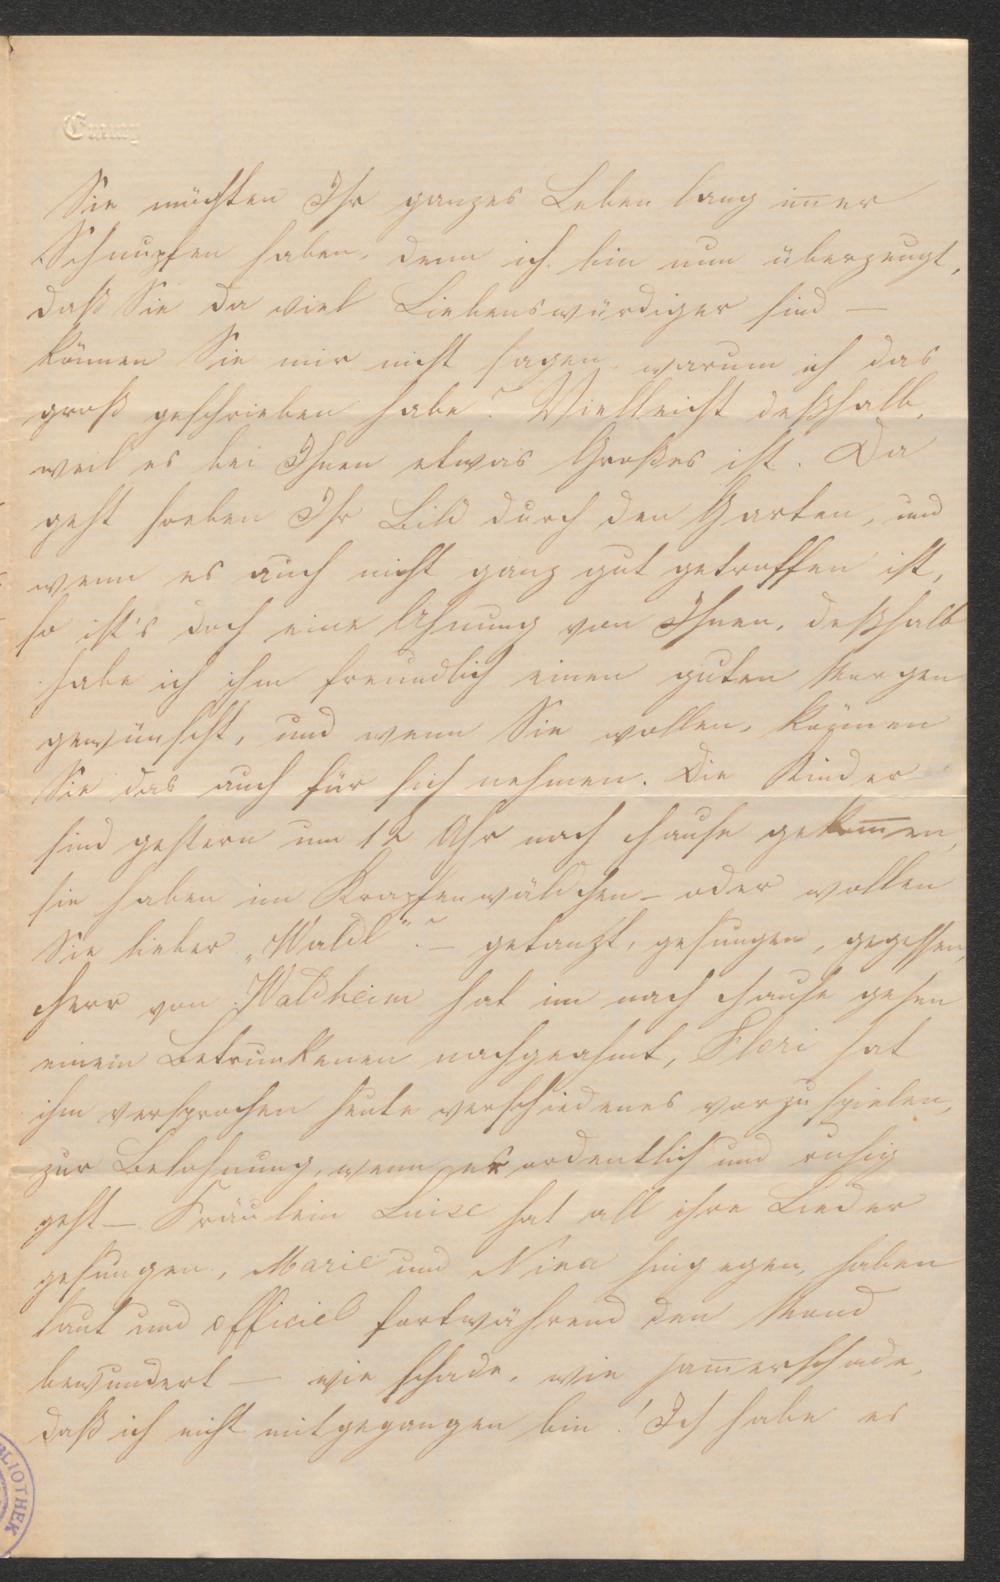 Sie möchten Ihr ganzes Leben lang im̅er
Schnupfen haben, denn ich bin nun überzeugt,
daß Sie da viel Liebenswürdiger sind —
können Sie mir nicht sagen warum ich das
groß geschrieben habe? Vielleicht deßhalb,
weil es bei Ihnen etwas Großes ist. Da
geht soeben Ihr Bild durch den Garten, und
wenn es auch nicht ganz gut getroffen ist,
so ist's doch eine Ahnung von Ihnen, deßhalb
habe ich ihm freundlich einen guten Morgen
gewünscht, und wenn Sie wollen, können
Sie das auch für sich nehmen. Die Kinder
sind gestern um 12 Uhr nach Hause gekom̅en,
sie haben im Krapfenwäldchen – oder wollen
Sie lieber „Waldl"? – getanzt, gesungen, gegessen,
Herr von Waldheim hat im nach Hause gehen
einen Betrunkenen nachgeahmt, Flori hat
ihm versprochen heute verschiedenes vorzuspielen,
zur Belohnung, wenn er ordentlich und ruhig
geht — Fräulein Luise hat all ihre Lieder
gesungen, Marie und Nina hingegen, haben
laut und officiel fortwährend den Mond
bewundert — wie schade, wie jam̅erschade,
daß ich nicht mitgegangen bin! Ich habe es
BLIOTHEK